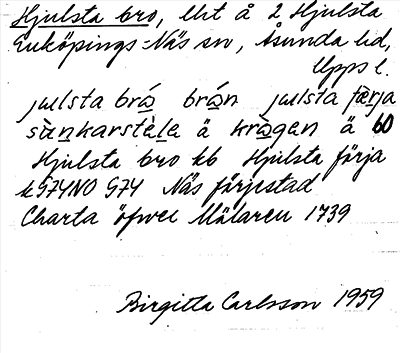 Hjulsta bro, Ut å 2 Hjulsta
Enköpings-Näs sn, Åsunda hd,
Upps l.
julsta brå brån julsta færja
sànkarstèle ä kràgen ä 60
Hjulsta bro kb Hjulsta färja
k 974NO G74 Näs färjestad
Charta öfwer Mälaren 1739
Birgitta Carlsson 1959